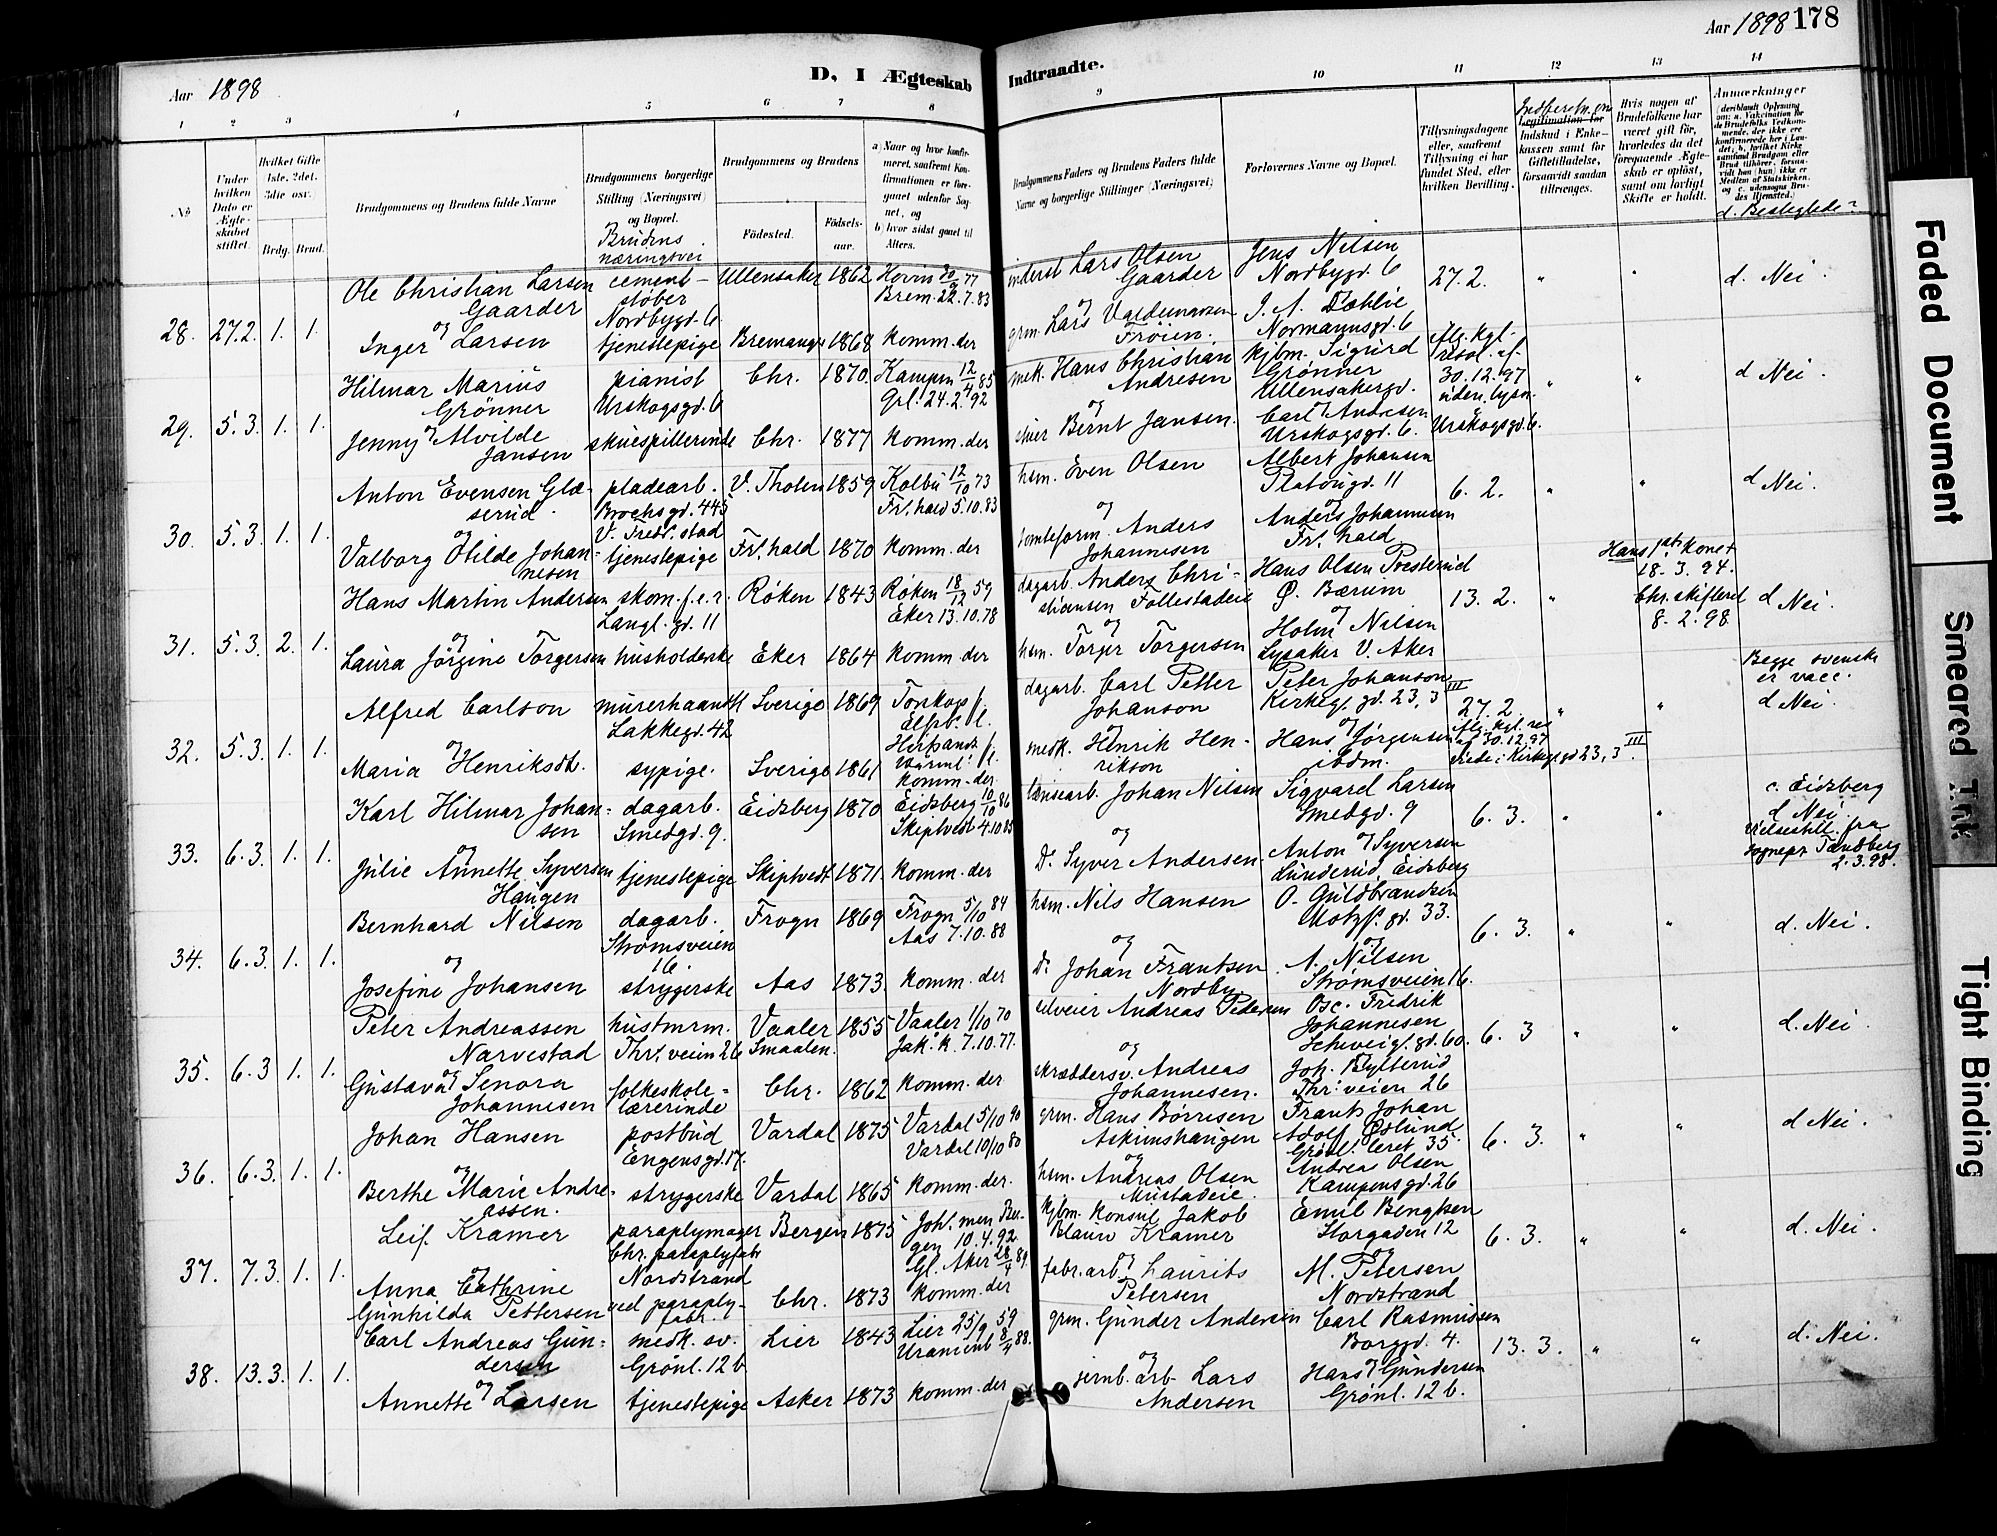 Aar 1898
D. I Ægteskab Indtraadte.
Aar 1898 178
1 2 3 4 5 6 7 8 9 10 11 12 13 14
No
Under hvilken Dato er Ægteskabet stiftet.
Hvilket Gifte 1ste, 2det, 3die osv.
Brdg. Brud.
Brudgommens og Brudens fulde Navne
Brudgommens borgerlige Stilling (Næringsvei) og Bopæl.
Brudens næringsvei
Brudgommens og Brudens
Fødested.
Fødselsaar.
a) Naar og hvor konfirmeret, saafremt Konfirmationen er foregaaet udenfor Sognet, og
b) hvor sidst gaaet til Alters.
Brudgommens Faders og Brudens Faders fulde Navne og borgerlige Stillinger (Næringsvei)
Forlovernes Navne og Bopæl.
Tillysningsdagene eller, saafremt Tillysning ei har fundet Sted, efter hvilken Bevilling.
Legitimation for Indskud i Enkekassen samt for Giftetilladelse, forsaavidt saadan tiltrænges.
Hvis nogen af Brudefolkene har været gift før, hvorledes da det foregaaende Ægteskab er opløst, samt om lovligt Skifte er holdt.
Anmærkninger
(deriblandt Oplysning om: a. Vaccination for de Brudefolks Vedkommende, der ikke ere konfirmerede her i Landet; b. hvilket Kirkesamfund Brudgom eller Brud tilhører, forsaavidt han (hun) ikke er Medlem af Statskirken, og c. udensogns Brudes Hjemsted.)
d. Beslegtede?
28. 27.2. 1. 1.
Ole Christian Larsen Gaarder
cementstøber Nordbygd. 6
Ullensaker 1862
Hovin 30/9 77
Brem. 22.7.83
inderst Lars Olsen Gaarder
Jens Nilsen Nordbygd. 6
27.2. " " d. Nei
og
Inger Larsen
tjenestepige
Bremanger 1868 Komm. der
grm. Lars Valdemarsen Frøien.
J. A. Dæhlie Normannsgd. 6
29. 5.3. 1. 1.
Hilmar Marius Grønner
pianist Urskogsgd. 6
Chr. 1870.
Kampen 12/4 85
Grl. 24.2.92
mek. Hans Christian Andresen
kjbm. Sigurd Grønner Ullensakergd.
Alg. kgl. resol. af 30.12.97 uden lysn.
" " d Nei.
og
Jenny Alvilde Jansen
skuespillerinde
Chr. 1877 komm. der
Bernt Jansen.
Carl Andresen Urskogsgd. 6.
Urskogsgd. 6.
30. 5.3. 1. 1.
Anton Evensen Glæserud
pladearb. Brochsgd. 443 V. Fred.stad
V. Thoten 1859
Kolbu 12/10 73
Fr.hald 5.10.83
hsm. Even Olsen
Albert Johansen Platougd. 11
6.2. " " d Nei.
og
Valborg Otilde Johannesen
tjenestepige
Fr.hald 1870 komm. der
tomteform. Anders Johannesen
Anders Johannesen Fr.hald
31. 5.3. 2. 1.
Hans Martin Andersen
skom. f.e.r. Langl. gd. 11
Røken 1843
Røken 18/12 59
Eker 13.10.78
dagarb. Anders Christiansen Follestadeie
Hans Olsen Presterud Ø. Bærum
13.2. "
Hans 1ste kone + 18.3.94. Chr. skiftert 8.2.98
d Nei.
og
Laura Jørgine Torgersen
husholderske
Eker 1864 komm. der
hsm. Torger Torgersen
Holm Nilsen Lysaker V. Aker
32. 5.3. 1. 1.
Alfred Carlson
murerhaandl. Lakkegd. 42
Sverige 1869
dagarb. Carl Petter Johanson
Peter Johanson Kirkeg. gd. 23, 3 III
27.2. " "
Begge svenske er vacc.
d Nei.
og
Maria Henriksdt.
sypige.
Sverige 1861
komm. der
medk. Henrik Henrikson
Hans Jørgensen ibdm.
Alg. kgl. res. af 30.12.97 viede i Kirkeg. gd 23, 3. III
33. 6.3. 1. 1.
Karl Hilmar Johansen
dagarb. Smedgd. 9.
Eidsberg 1870
Eidsberg 10/10 86
Skiptvedt 4.10.85
lænsearb. Johan Nilsen
Sigvard Larsen Smedgd. 9
6.3. " "
c. Eidsberg
d. Nei
Vielsestill. fra sognepr. Tandberg 2.3.98.
og
Julie Annette Syversen Haugen
tjenestepige
Skiptvedt 1871 komm. der
Do Syver Andersen.
Anton Syversen Lunderud, Eidsberg
34. 6.3. 1. 1.
Bernhard Nilsen
dagarb. Strømsveien 16.
Frogn 1869
Frogn 5/10 84
Aas 7.10.88
hsm. Nils Hansen
O. Guldbrandsen Motzf. gd. 33.
6.3. " " d. Nei.
og
Josefine Johansen
strygerske
Aas 1873. komm. der
Do Johan Frantsen Nordby.
A. Nilsen Strømsveien 16.
35. 6.3 1. 1.
Peter Andreassen Narvestad
hustmrm. Thr.veien 26
Vaaler Smaalen. 1855
Vaaler 1/10 70
Jak. k. 7.10.77.
selveier Andreas Pedersen
Osc. Fredrik Johannesen Schweig. gd. 60.
6.3 " " d. Nei.
og
Gustava Senora Johannesen
folkeskolelærerinde
Chr. 1862 komm. der
skrædders. Andreas Johannesen.
Joh. Bylterud Thr.veien 26
36. 6.3. 1. 1.
Johan Hansen
postbud Engensgd. 17.
Vardal 1875
Vardal 5/10 90
Vardal 10/10 80
grm. Hans Børresen Askimshaugen
Frants Johan Adolf Østlund Grønl. leret 35.
6.3. " " d Nei.
og
Berthe Marie Andreassen.
strygerske
Vardal 1865 komm. der.
hsm. Andreas Olsen Mustadeie.
Andreas Olsen Kampensgd. 26
37. 7.3. 1. 1.
Leif Kramer
paraplymager Chr. paraplyfabr. Nordstrand
Bergen 1875
Joh. men. Bergen 10.4.92.
kjbm. konsul Jakob Blauw Kramer
Emil Bengtsen Storgaden 12
6.3. " " d. Nei.
og
Anna Cathrine Gunhilda Pettersen
ved paraplyfabr.
Chr. 1873
Gl. Aker 28/4 89.
komm. der
fabr.arb. Laurits Petersen
M. Petersen Nordstrand
38. 13.3. 1. 1.
Carl Andreas Gundersen
medk. sv. Grønl. 12b
Lier 1843
Lier 25/9 59
Uranienb. 8/4 88.
grm. Gunder Andersen
Carl Rasmussen Borggd. 4.
13.3. " " d. Nei.
og
Annette Larsen
tjenestepige
Asker 1873 komm. der
jernb. arb. Lars Andersen
Hans Gundersen Grønl. 12b.
Faded Document
Smeared Ink
Tight Binding